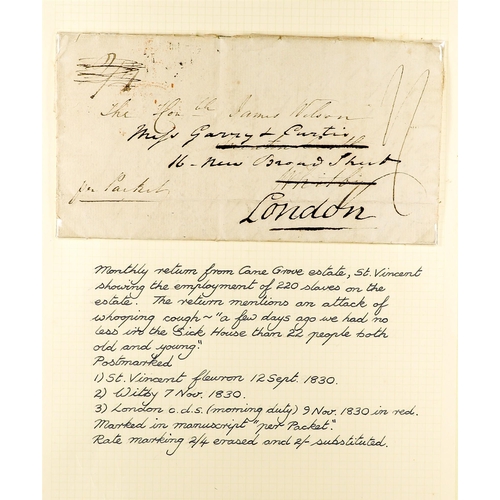 The Hon'ble James Wilson
Mess Garry & Curtis
16 - New Broad Street
Whitby
per Packet
London
Monthly return from Cane Grove estate, St. Vincent
showing the employment of 220 slaves on the
estate. The return mentions an attack of
whooping cough ~ "a few days ago we had no
less in the Sick House than 22 people both
old and young".
Postmarked
1) St. Vincent fleuron 12 Sept. 1830.
2) Witby 7 Nov. 1830.
3) London c.d.s. (morning duty) 9 Nov. 1830 in red.
Marked in manuscript "per Packet".
Rate marking 2/4 erased and 2/- substituted.